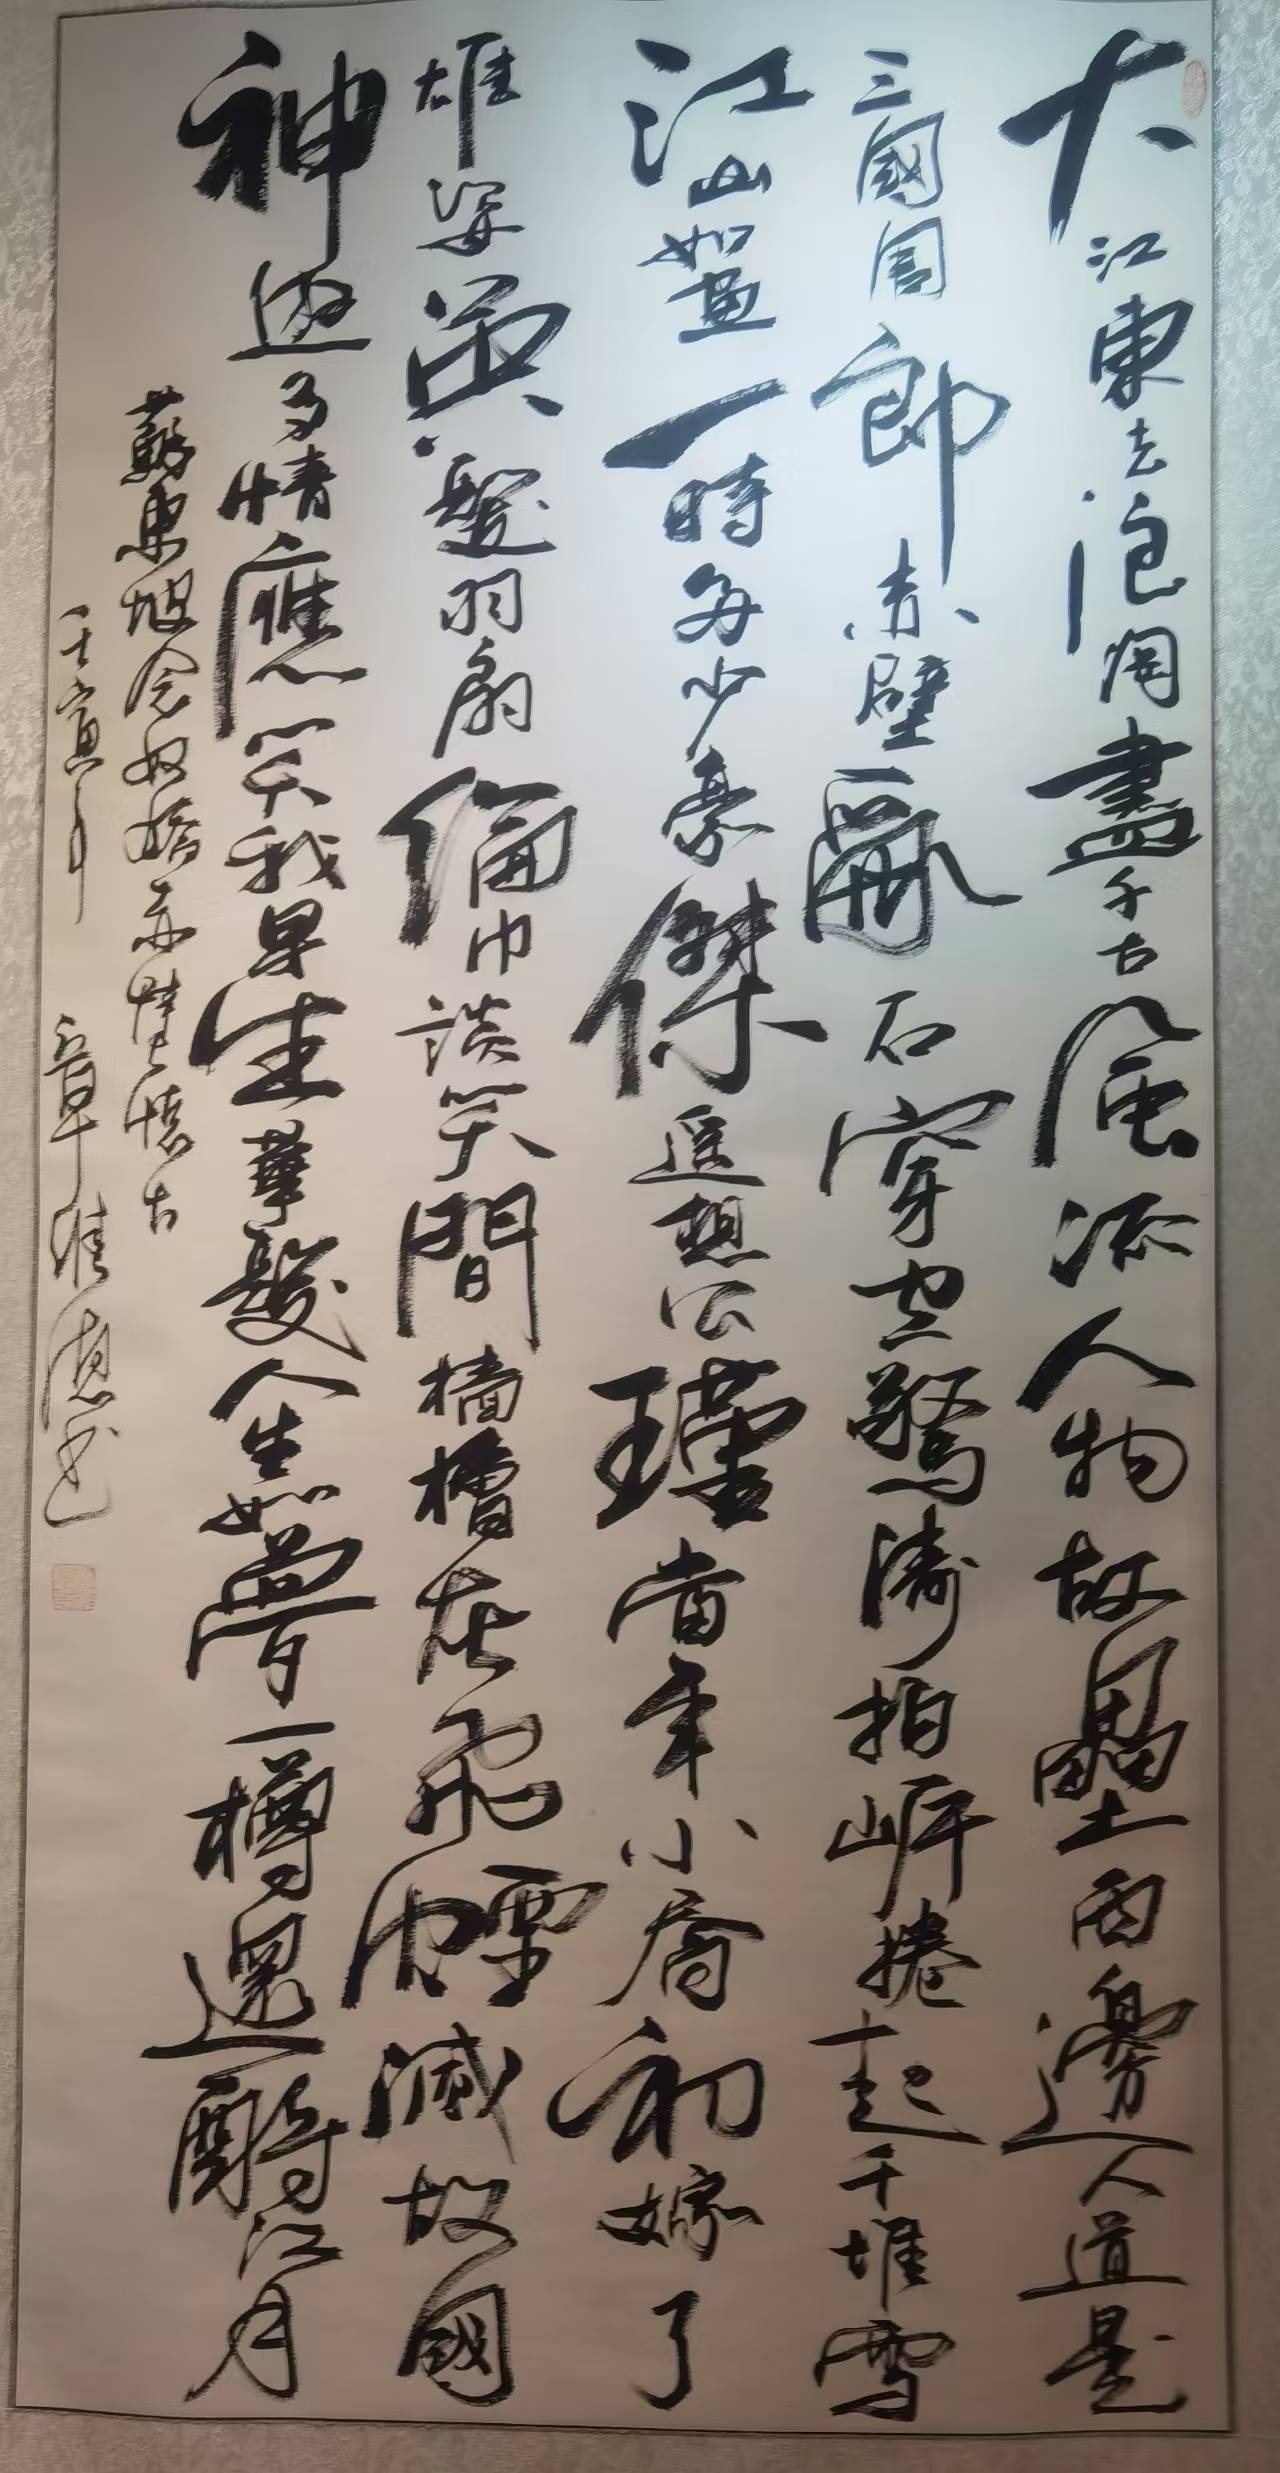 大江東去浪淘盡千古風流人物故壘西邊人道是
三國周郎赤壁亂石穿空驚濤拍岸捲起千堆雪
江山如畫一時多少豪傑遥想公瑾當年小喬初嫁了
雄姿英發羽扇綸巾談笑間檣櫓灰飛煙滅故國
神遊多情應笑我早生華髮人生如夢一樽還酹江月
蘇東坡念奴嬌赤壁懷古
壬寅年 章維德書